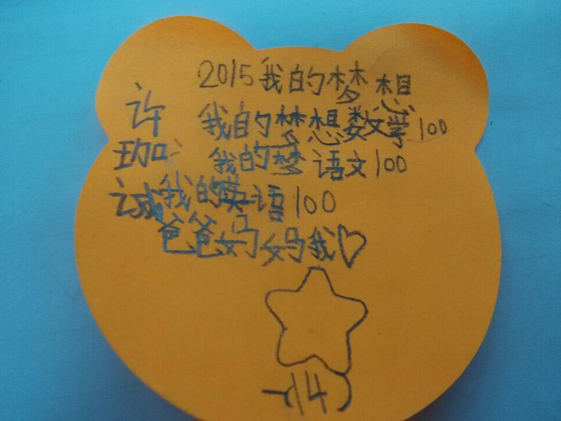 2015我的梦想
许珈诚
我的梦想数学100
我的梦语文100
我的英语100
爸爸妈妈我♡
14